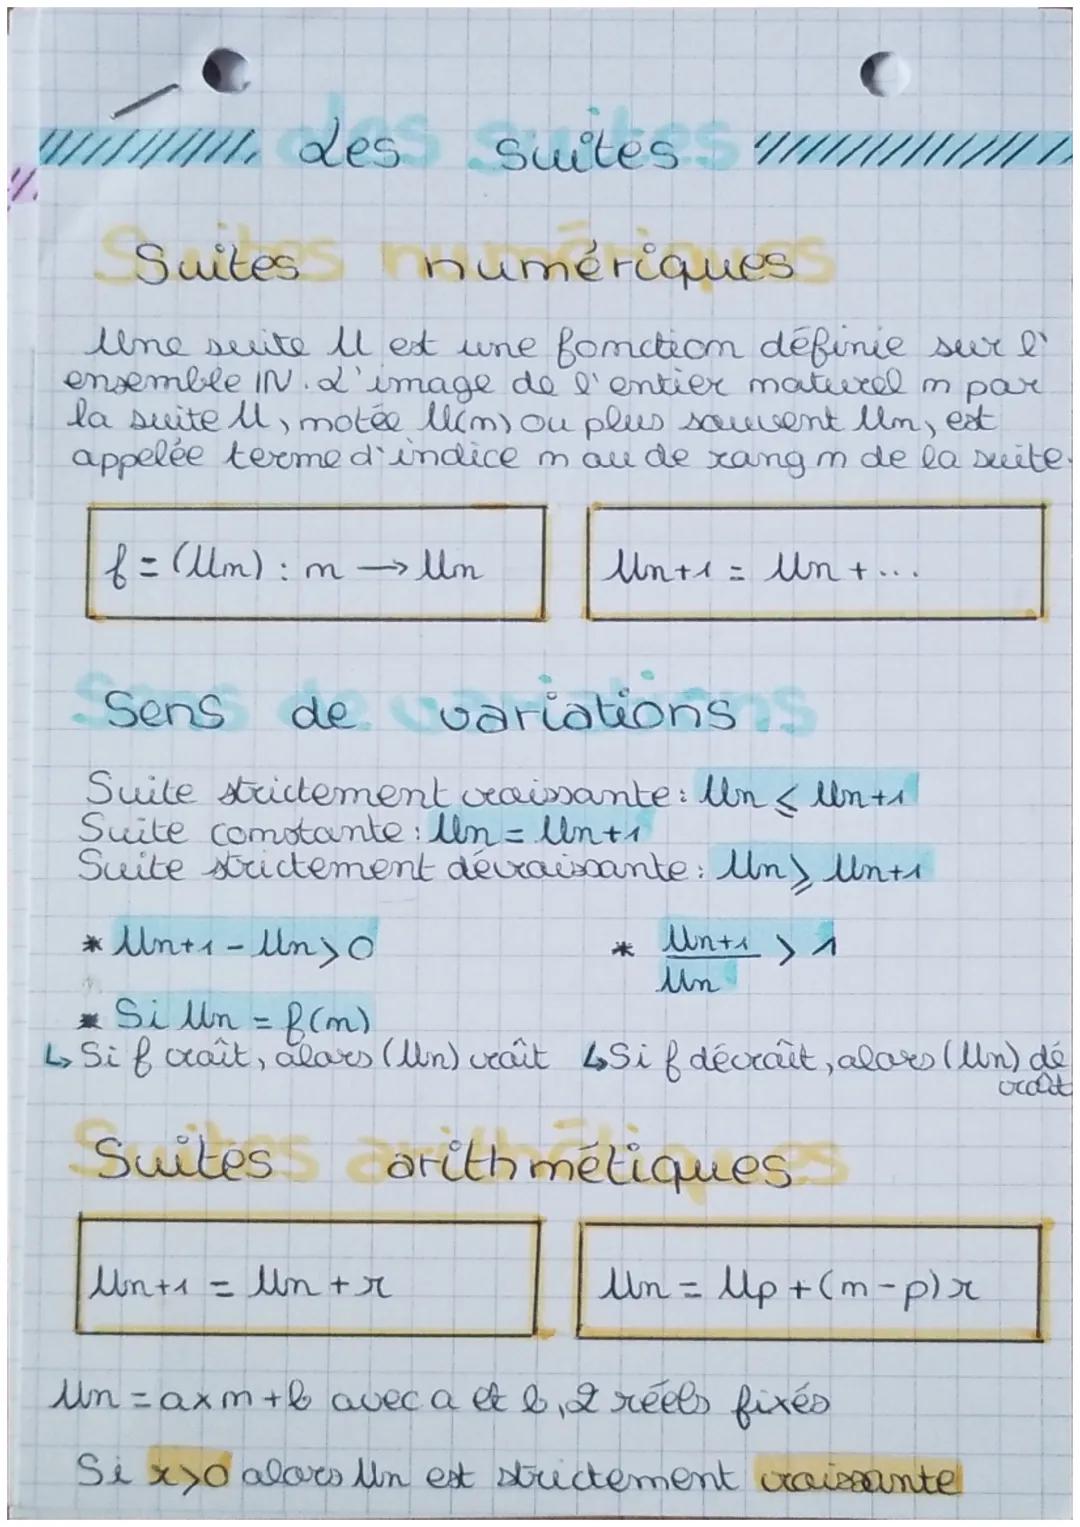 Les suites
Suites numériques
Une suite U est une fonction définie sur l'
ensemble IN. L'image de l'entier naturel n par
la suite U, notée U(n) ou plus souvent Un, est
appelée terme d'indice n ou de rang n de la suite.
f = (Un) : n → Un
Un+1 = Un + ...
Sens de variations
Suite strictement croissante : Un ⩽ Un+1
Suite constante : Un = Un+1
Suite strictement décroissante : Un ⩾ Un+1
* Un+1 - Un > 0
* Un+1 / Un > 1
* Si Un = f(n)
↳ Si f croît, alors (Un) croît ↳ Si f décroît, alors (Un) dé
croît
Suites arithmétiques
Un+1 = Un + r
Un = Up + (n - p) r
Un = a x n + b avec a et b, 2 réels fixés
Si r > 0 alors Un est strictement croissante